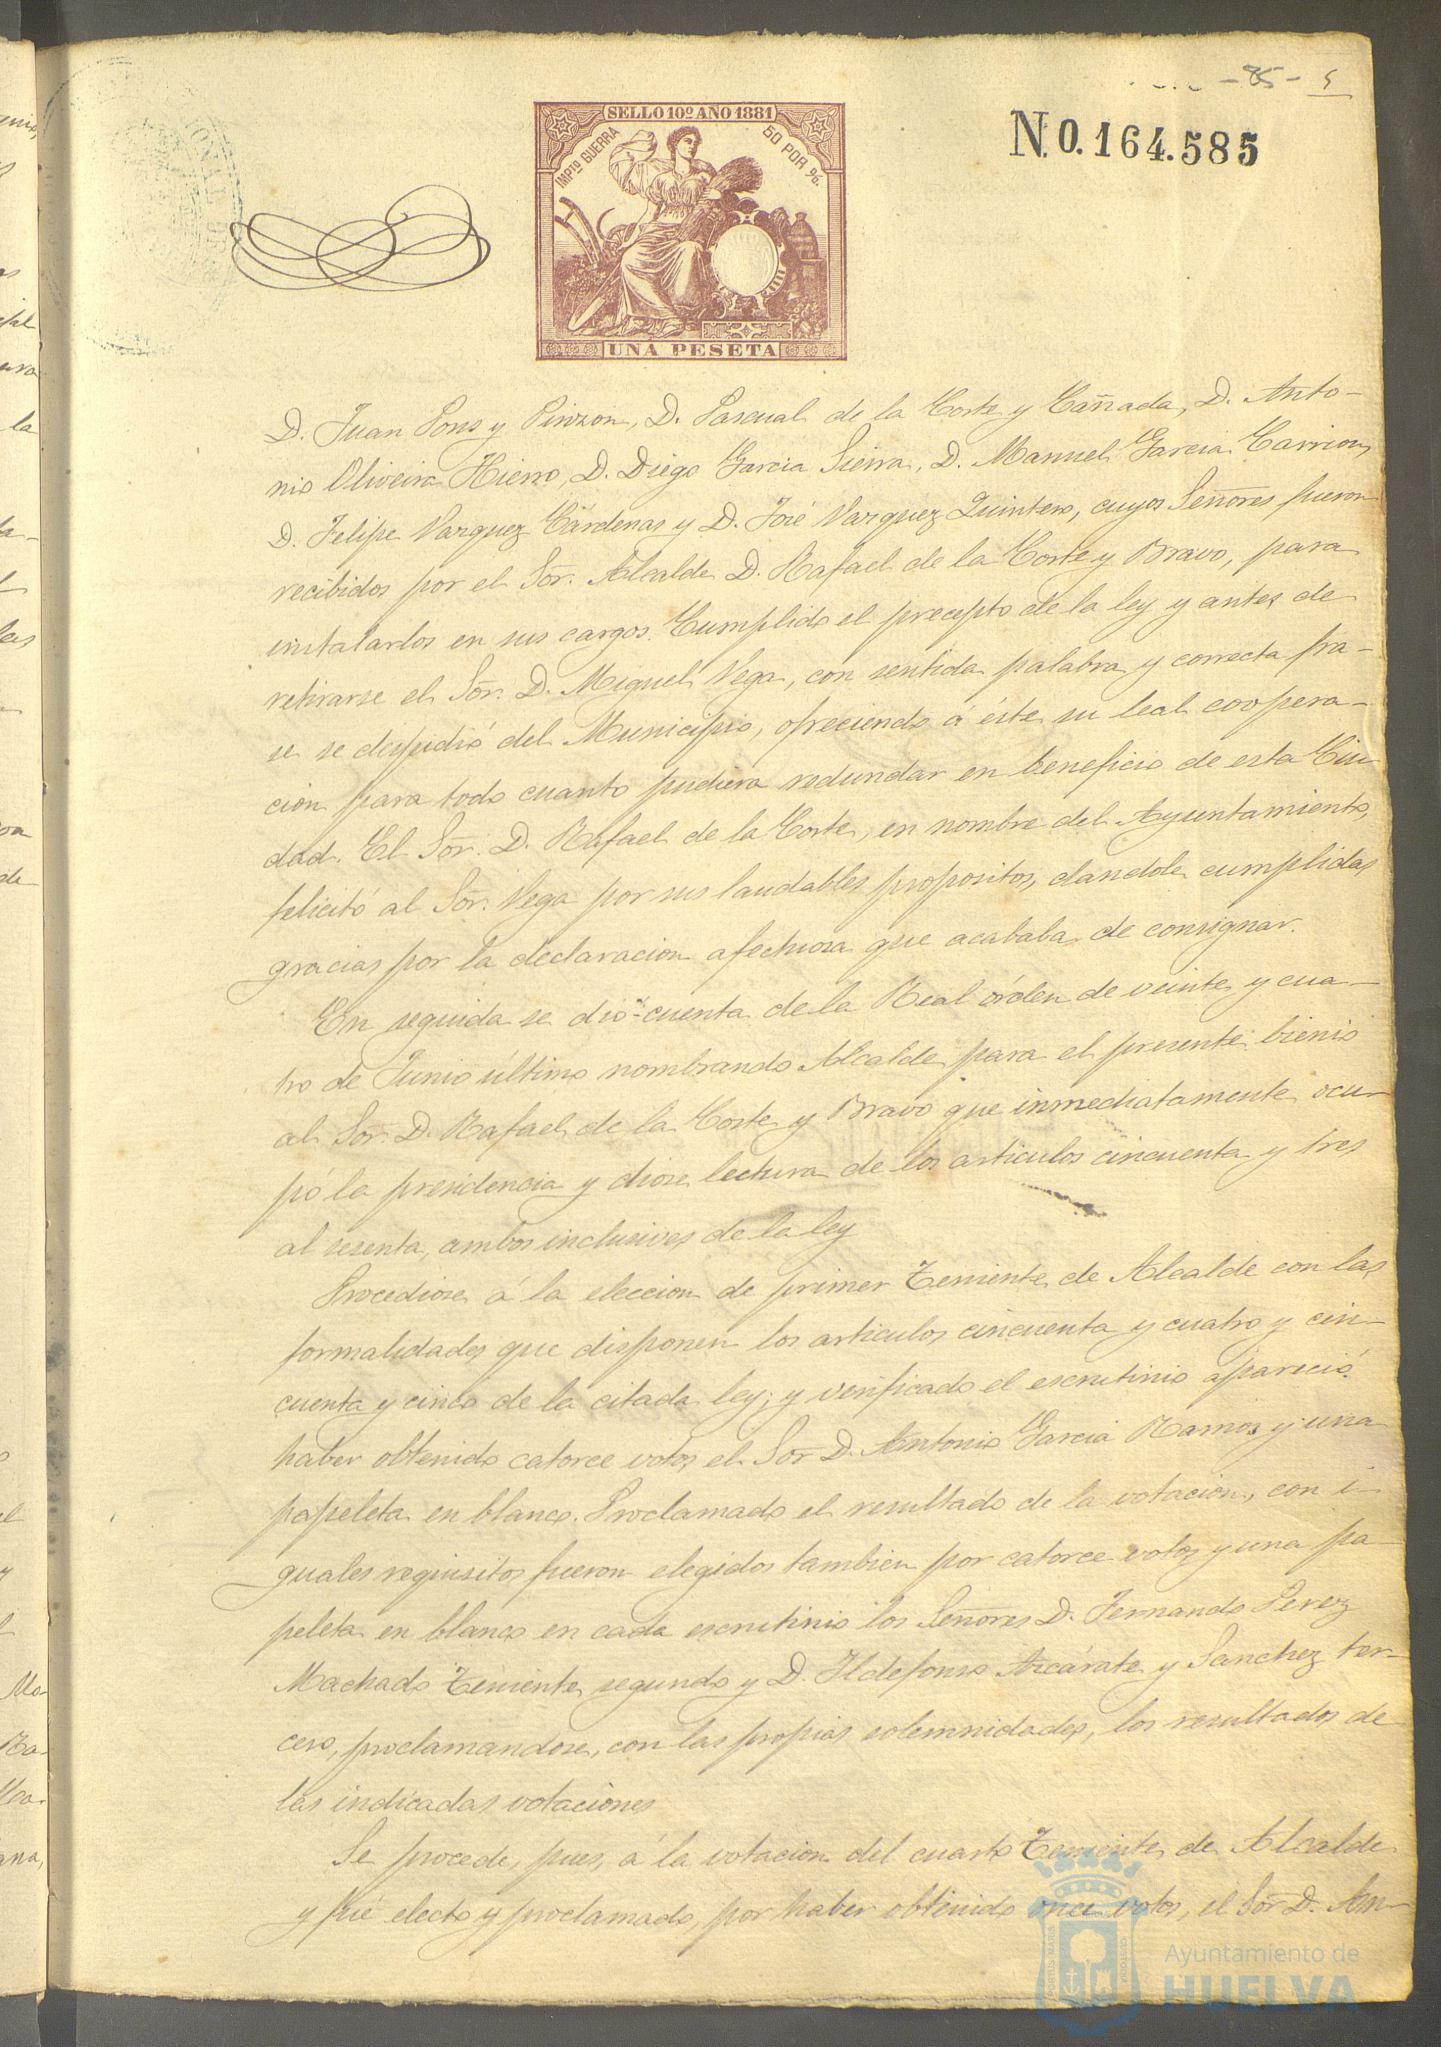 - 85 - 5
SELLO 10º AÑO 1881
IMPTO GUERRA
50 POR %.
UNA PESETA
N.0.164.585
D. Juan Pons y Pinzon, D. Pascual de la Corte y Cañada, D. Anto-
nio Oliveira Hierro, D. Diego Garcia Sierra, D. Manuel Garcia Carrion,
D. Felipe Vazquez Cárdenas y D. José Vazquez Quintero, cuyos Señores fueron
recibidos por el Sor. Alcalde D. Rafael de la Corte y Bravo, para
instalarlos en sus cargos. Cumplido el precepto de la ley y antes de
retirarse el Sor. D. Miguel Vega, con sentida palabra y correcta fra-
se se despidió del Municipio, ofreciendo á éste su leal coopera-
cion para todo cuanto pudiera redundar en beneficio de esta Ciu
dad. El Sor. D. Rafael de la Corte, en nombre del Ayuntamiento,
felicitó al Sor. Vega por sus laudables propositos, dandole cumplidas
gracias por la declaracion afectuosa que acababa de consignar.
En seguida se dio cuenta de la Real órden de veinte y cua-
tro de Junio último nombrando Alcalde para el presente bienio
al Sor. D. Rafael de la Corte y Bravo que inmediatamente ocu-
pó la presidencia y diose lectura de los articulos cincuenta y tres
al sesenta, ambos inclusives de la ley
Procediose á la eleccion de primer Teniente de Alcalde con las
formalidades que disponen los articulos cincuenta y cuatro y cin-
cuenta y cinco de la citada ley; y verificado el escrutinio apareció
haber obtenido catorce votos el Sor D. Antonio Garcia Ramos y una
papeleta en blanco. Proclamado el resultado de la votacion, con i-
guales requisitos fueron elegidos tambien por catorce votos y una pa-
peleta en blanco en cada escrutinio los Señores D. Fernando Perez
Machado Teniente segundo y D. Ildefonso Azcárate y Sanchez ter-
cero, proclamandose, con las propias solemnidades, los resultados de
las indicadas votaciones
Se procede, pues, á la votacion del cuarto Teniente de Alcalde
y fué electo y proclamado, por haber obtenido once votos, el Sor D. An-
Ayuntamiento de
HUELVA